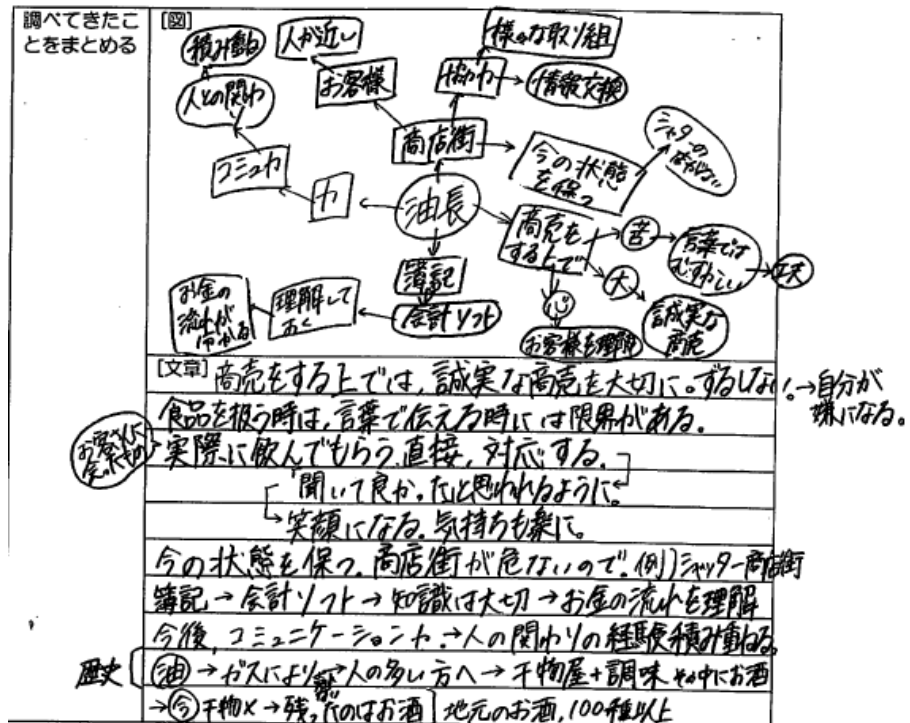 調べてきたこ
とをまとめる
[図]
積み重ね
人との関わり
コミュ力
力
人が近い
お客様
商店街
協力
様々な取り組
情報交換
今の状態
を保つ
シャッターの
油長
商売を
する上で
苦
言葉では
むずかしい
工夫
大
誠実な
商売
心
お客様を理解
簿記
会計ソフト
理解して
おく
お金の
流れが
分かる
[文章] 商売をする上では、誠実な商売を大切に。ずるしない!→自分が
嫌になる。
食品を扱う時は、言葉で伝える時には限界がある。
お客さんに
実際に飲んでもらう、直接、対応する。
「聞いて良かった」と思われるように。
→笑顔になる。気持ちも楽に。
今の状態を保つ。商店街が危ないので。例)シャッター商店街
簿記→会計ソフト→知識は大切→お金の流れを理解
今後、コミュニケーション力→人の関わりの経験積み重ねる。
歴史
油→ガスにより→人の多い方へ→干物屋+調味 その中にお酒
→今 干物×→残ったのはお酒 地元のお酒、100種以上